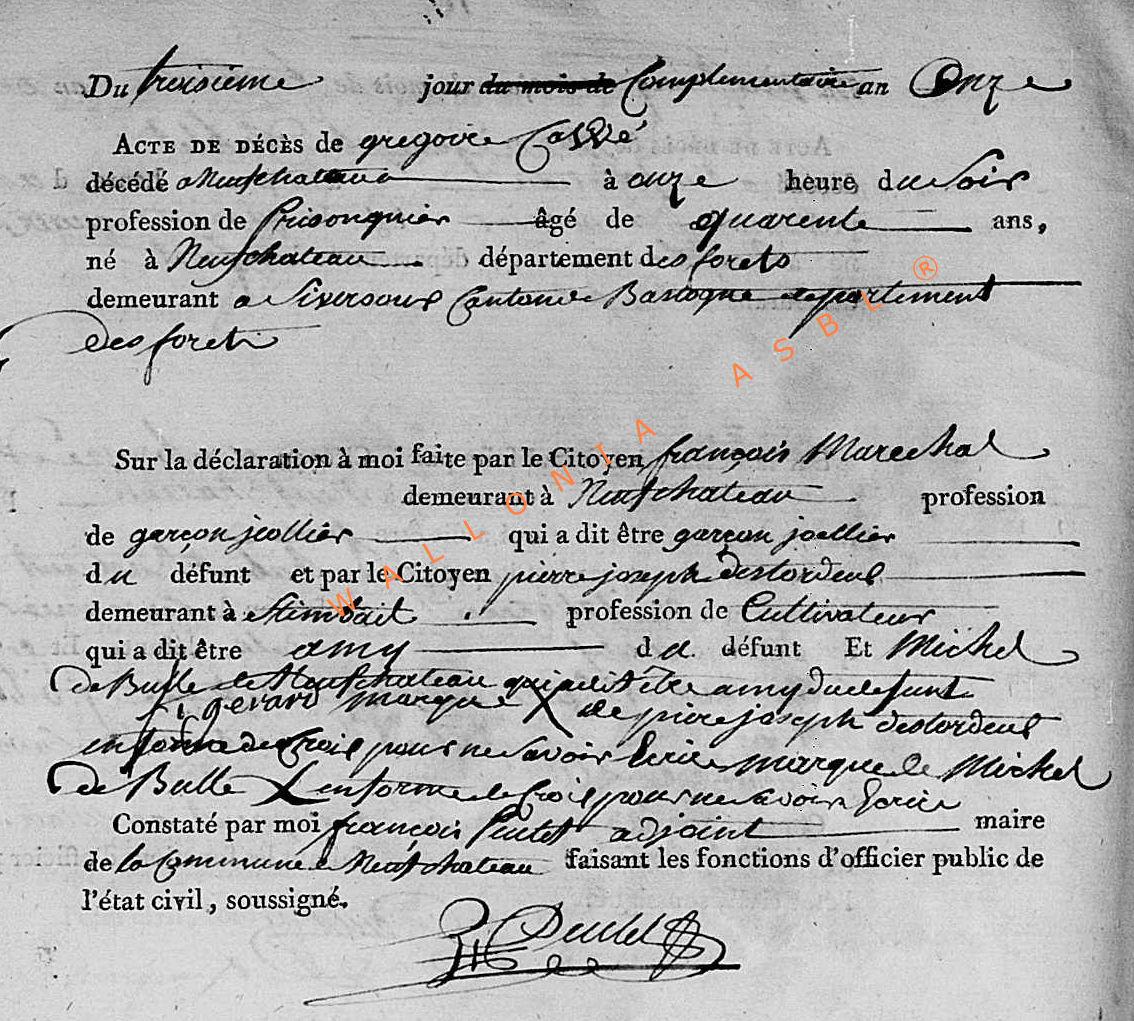 Du troisieme jour du mois de Complimentaire an Onze
ACTE DE DÉCÈS de gregoire
décédé a Neufchateau à onze heure du Soir
profession de Prisongnier âgé de quarente ans,
né à Neufchateau département des forets
demeurant a Canton de Bastogne departement
des forets
Sur la déclaration à moi faite par le Citoyen françois Marechal
demeurant à Neufchateau profession
de garçon jeollier qui a dit être garçon joellier
du défunt et par le Citoyen pierre joseph destordeus
demeurant à profession de Cultivateur
qui a dit être amy du défunt Et Michel
de Bulle de Neufchateau qui a dit être amy du defunt
gerard marque X de pierre joseph destordeus
en forme de Croix pour ne Savoir Ecrire marque de Michel
de Bulle X en forme de Croix pour ne Savoir Ecrire
Constaté par moi françois adjoint maire
de la Commune de Neufchateau faisant les fonctions d'officier public de
l'état civil, soussigné.
WALLONIA ASBL ®